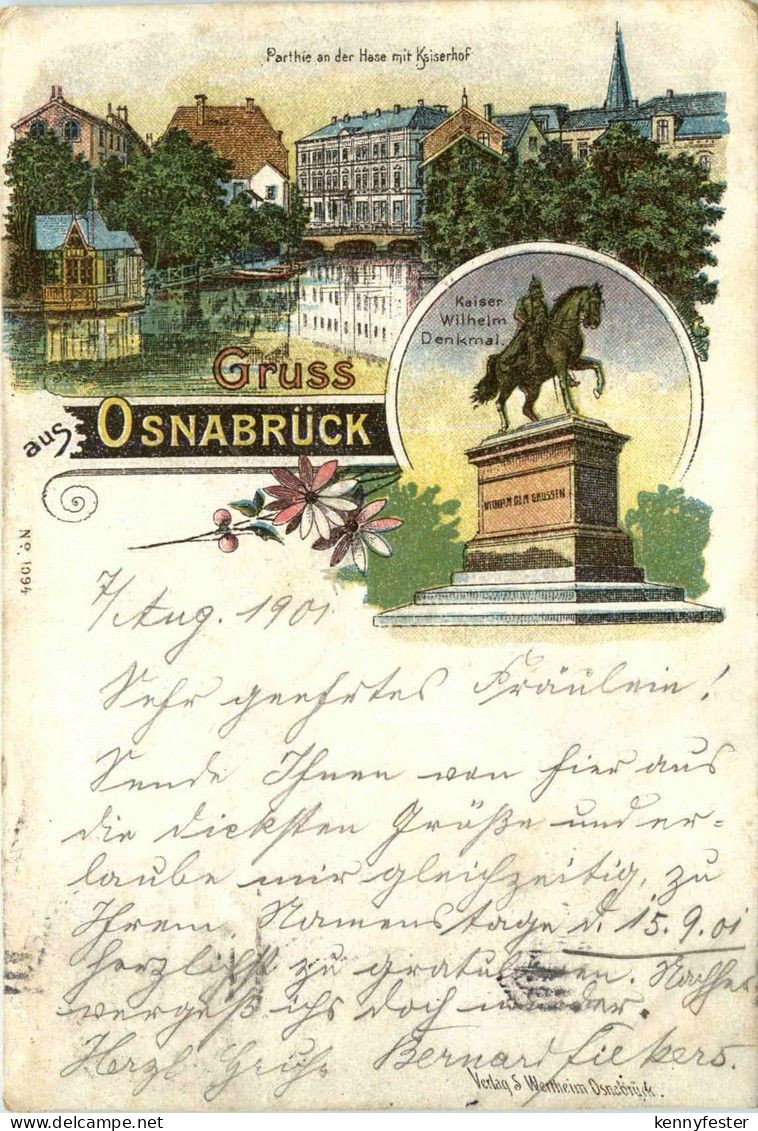 Parthie an der Hase mit Kaiserhof
Kaiser
Wilhelm
Denkmal.
Gruss
aus OSNABRÜCK
WILHELM DEM GROSSEN
No. 1094
7/Aug. 1901
Sehr geehrtes Fräulein!
Sende Ihnen von hier aus
die dicksten Grüße und er-
laube mir gleichzeitig, zu
Ihrem Namenstage d. 15.9.01
herzlichst zu gratulieren. Nachher
vergeß ichs doch wieder.
Herzl. Gruß Bernard
Verlag S. Wertheim Osnabrück.
kennyfester